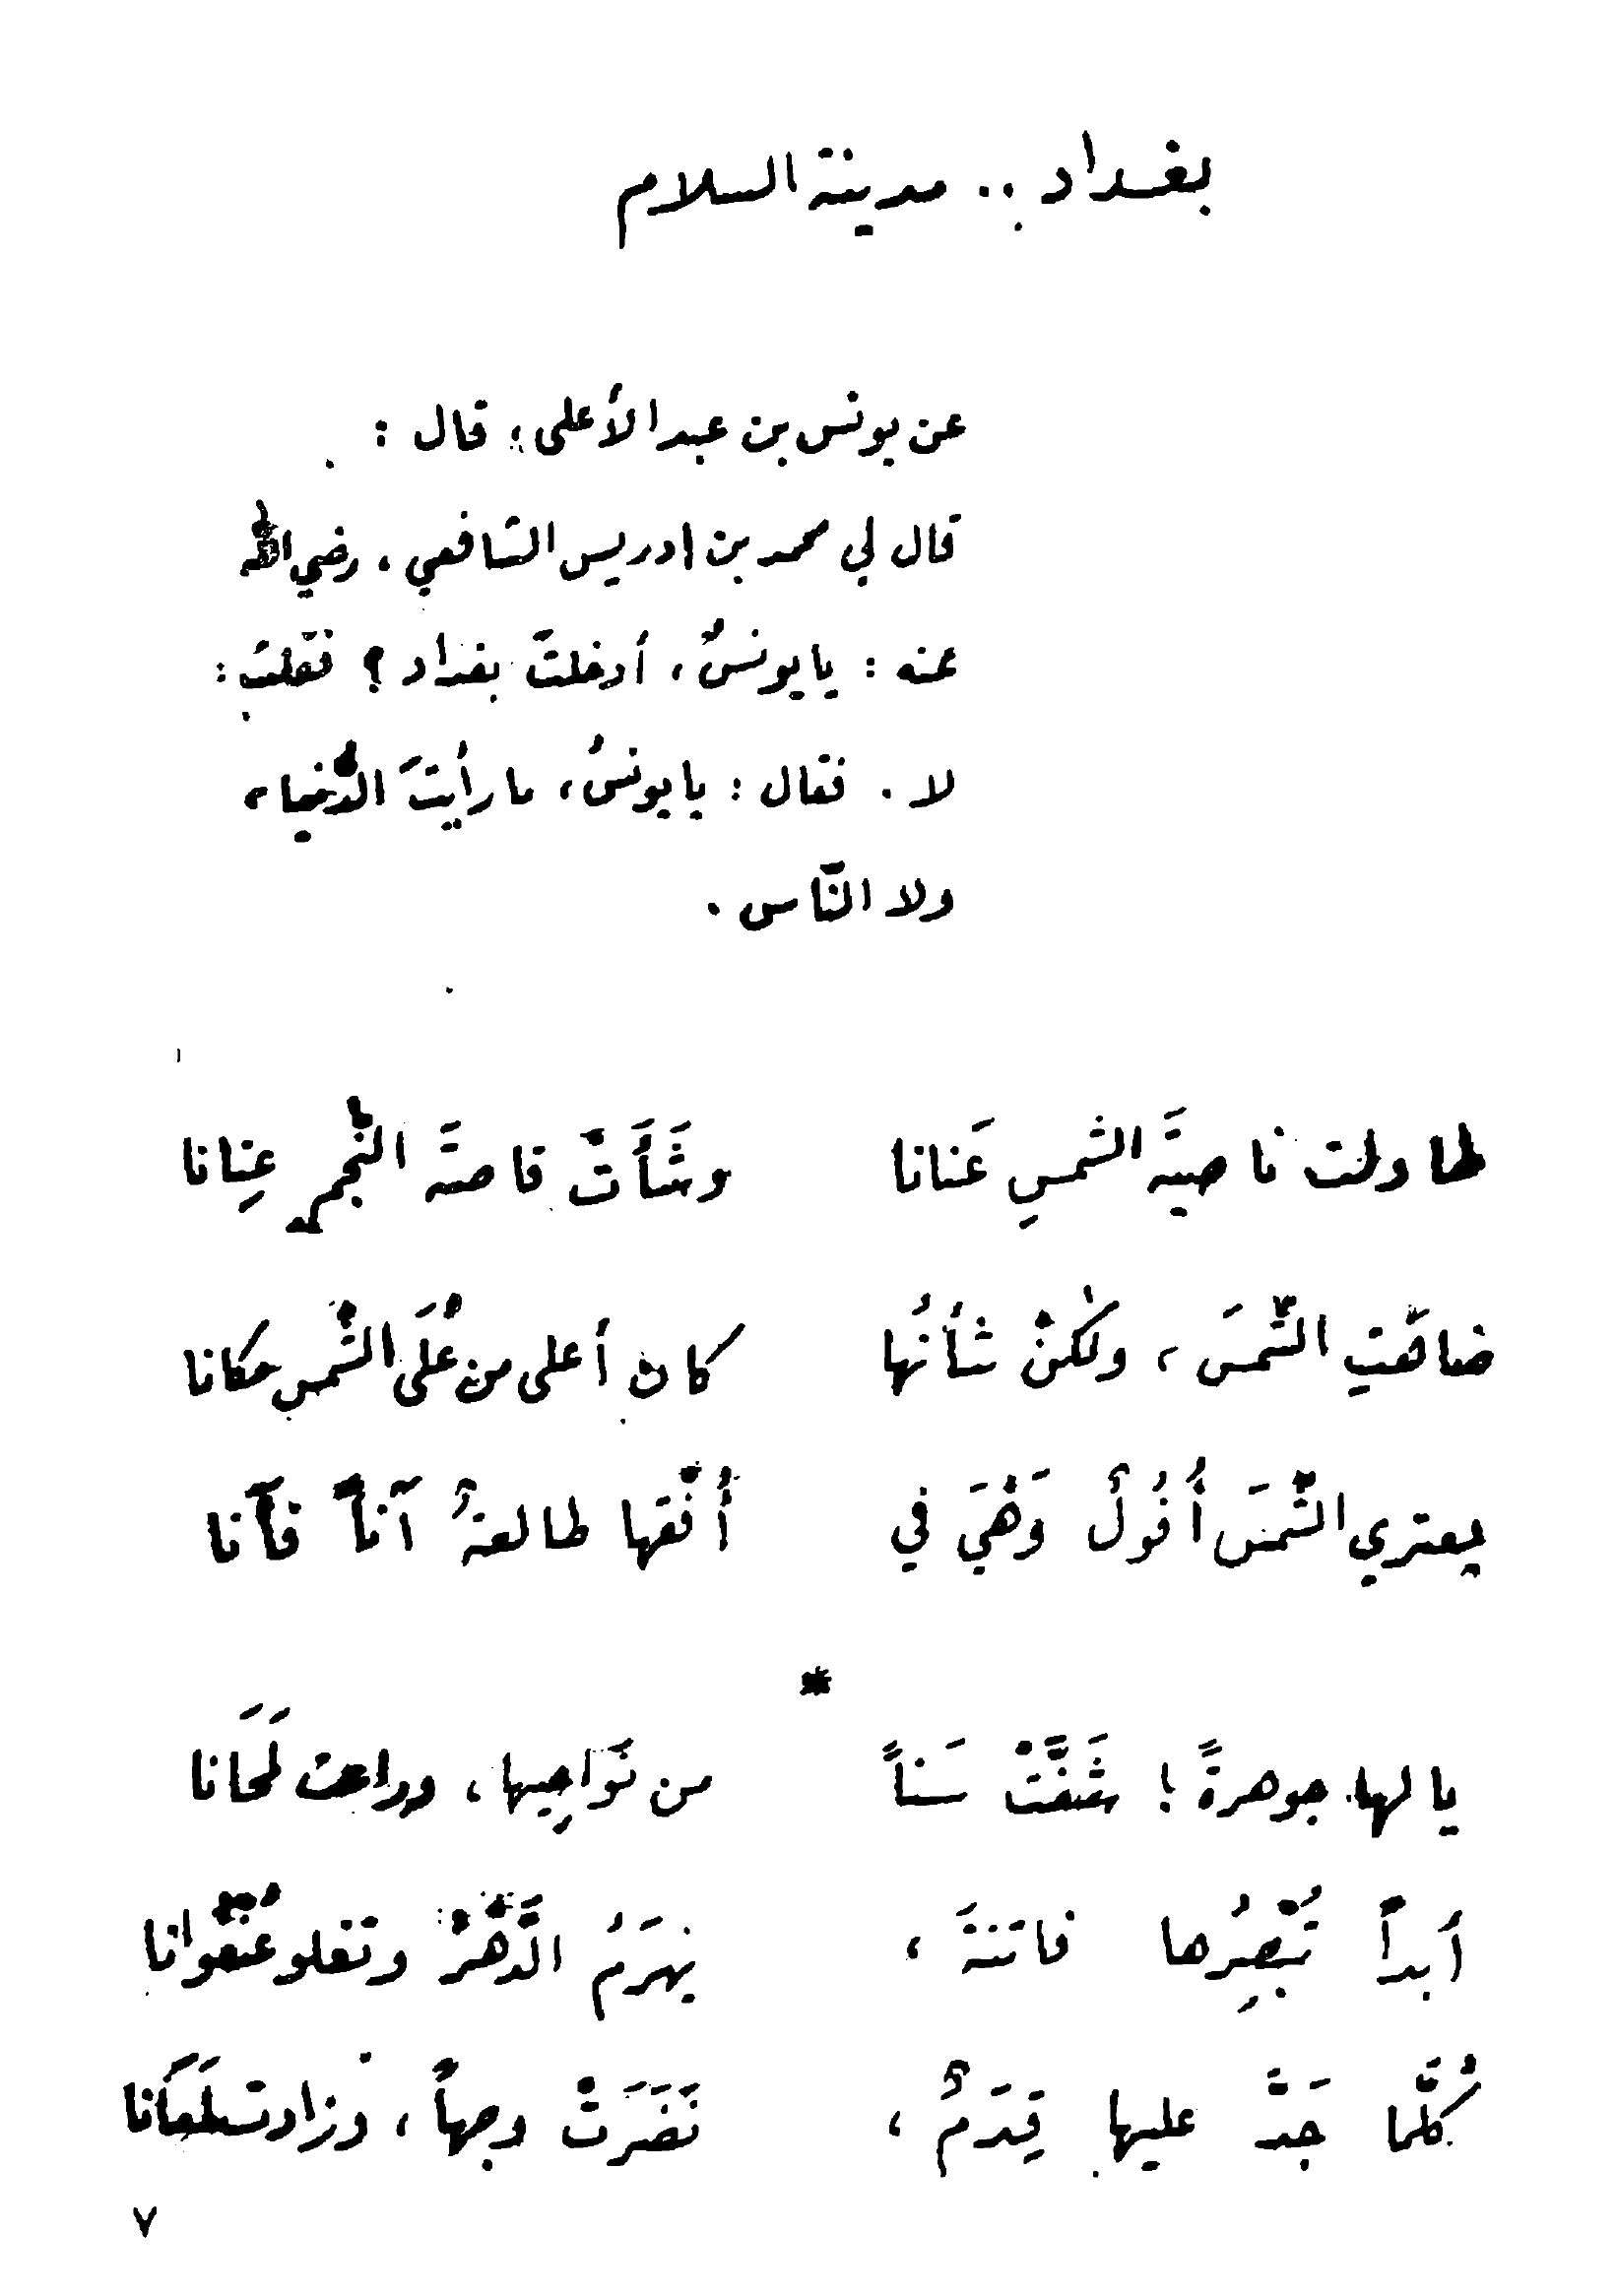 بغداد .. مدينة السلام
عن يونس بن عبد الأعلى ، قال :
قال لي محمد بن ادريس الشافعي ، رضي الله
عنه : يا يونسُ ، أدخلتَ بغداد ؟ فقلت :
لا . فقال : يا يونسُ ، ما رأيتَ الدُّنيا ،
ولا النّاس .
طاولت ناصيةَ الشمسِ عَنانا وشَأَتْ قاصتَه النَّجم عِنانا
ضاهَتِ الشّمسَ ، ولكنْ شأنُها كان أعلى من عُلَى الشّمس مكانا
يعتري الشّمسَ أُفُولٌ وَهْيَ في أُفْقها طالعةٌ آناً فآنا
*
يا لها جوهرةً ! شَفَّتْ سَناً من نَوَاحِيها ، وراعت لَمَحَانا
أبداً تُبْصِرُها فاتنةَ ، يهرَمُ الدَّهْرُ وتغلو عُنفُوانا
كُلَّما جَدَّ عليها قِدَمٌ ، نَضَرَتْ وجهاً ، وزادت لَمَعَانا
٧